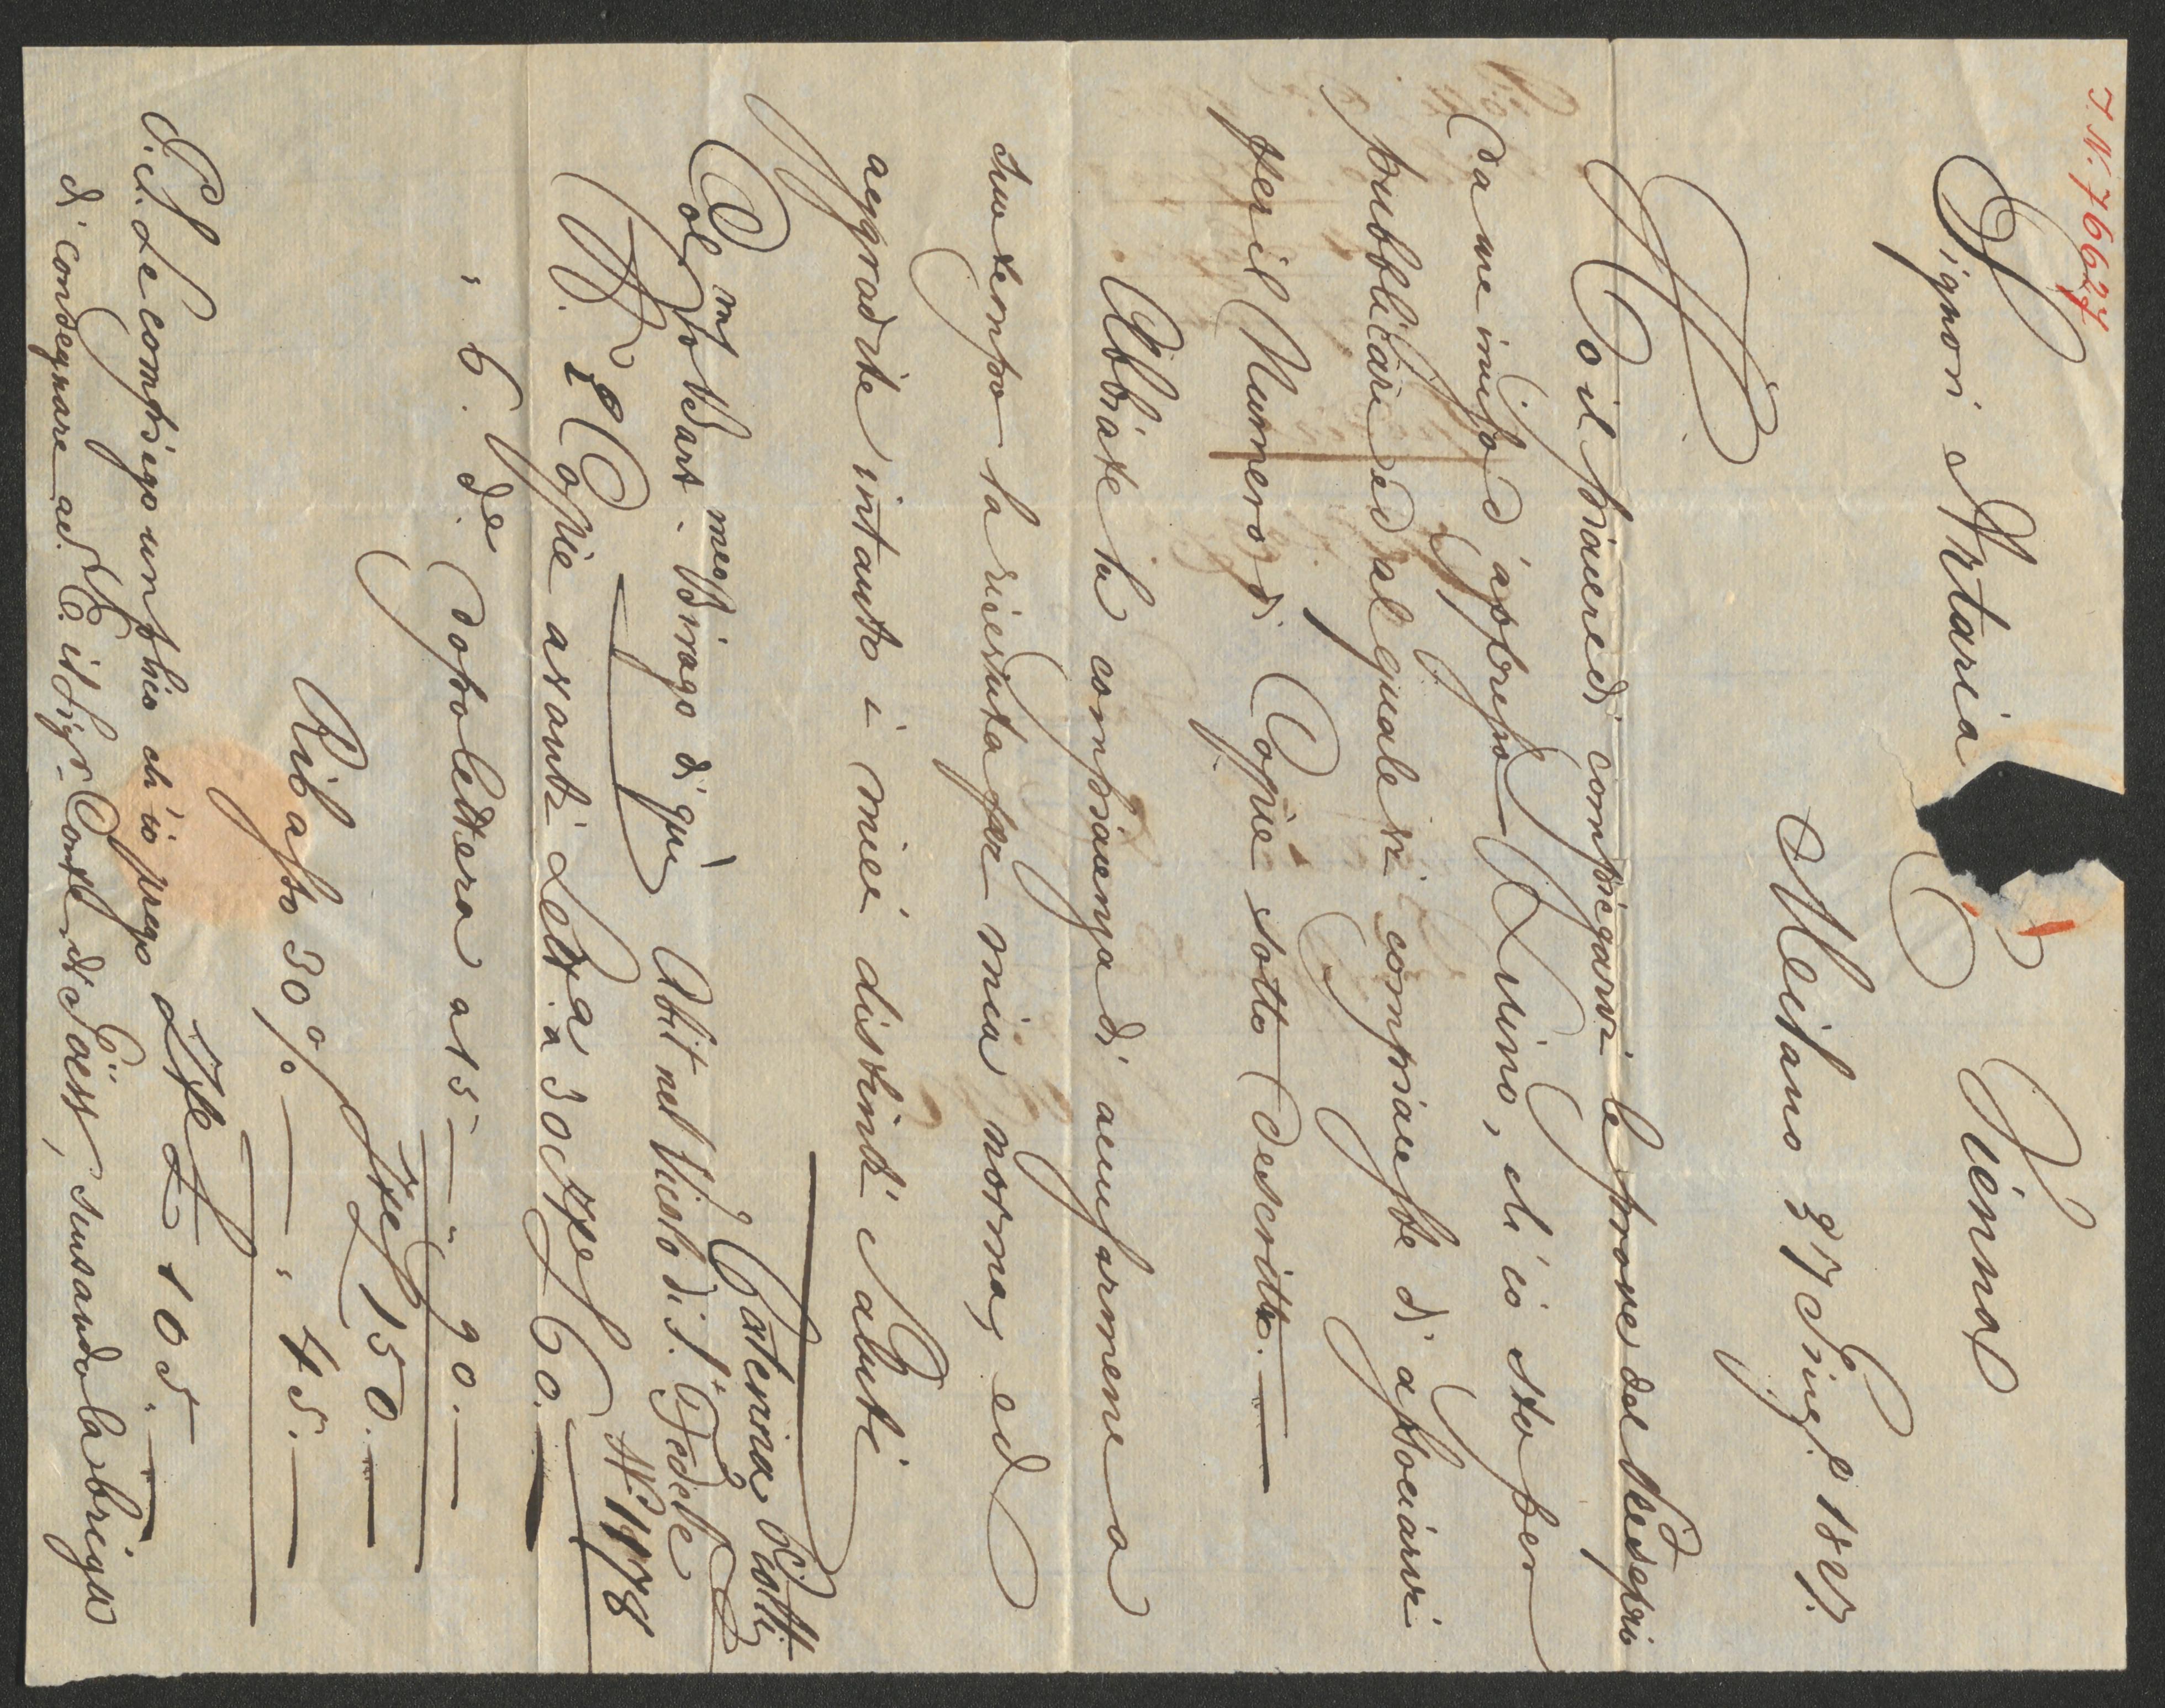 I.N. 76627
Signori Artaria C. Vienna
Milano 27 Giug.º 1827.
Ho il piacere di compiegarvi le prove del Vesperio
da me inciso ed appresso Luino, ch'io sto per
pubblicare ed al quale vi compiaceste di associarvi
per il Numero di Copie sotto descritte.
Abbiate la compiacenza di accusarmene a
suo tempo la ricevuta per mia norma, ed
aggradite intanto i miei distinti saluti
Caterina Piotti
Col mezzo Birago di qui
Abit nel Vicolo di S. Fedele
N.º 1978
N.º 2 Copie avanti Lettra a 30 60.
" 6. d.e dopo lettera a 15 " 90.
150.
Ribasso 30 % " 45.
105.
P.S. Le compiego un plico ch'io prego
di consegnare ad S.E. il Sig.r Conte di Goëss, scusando la briga